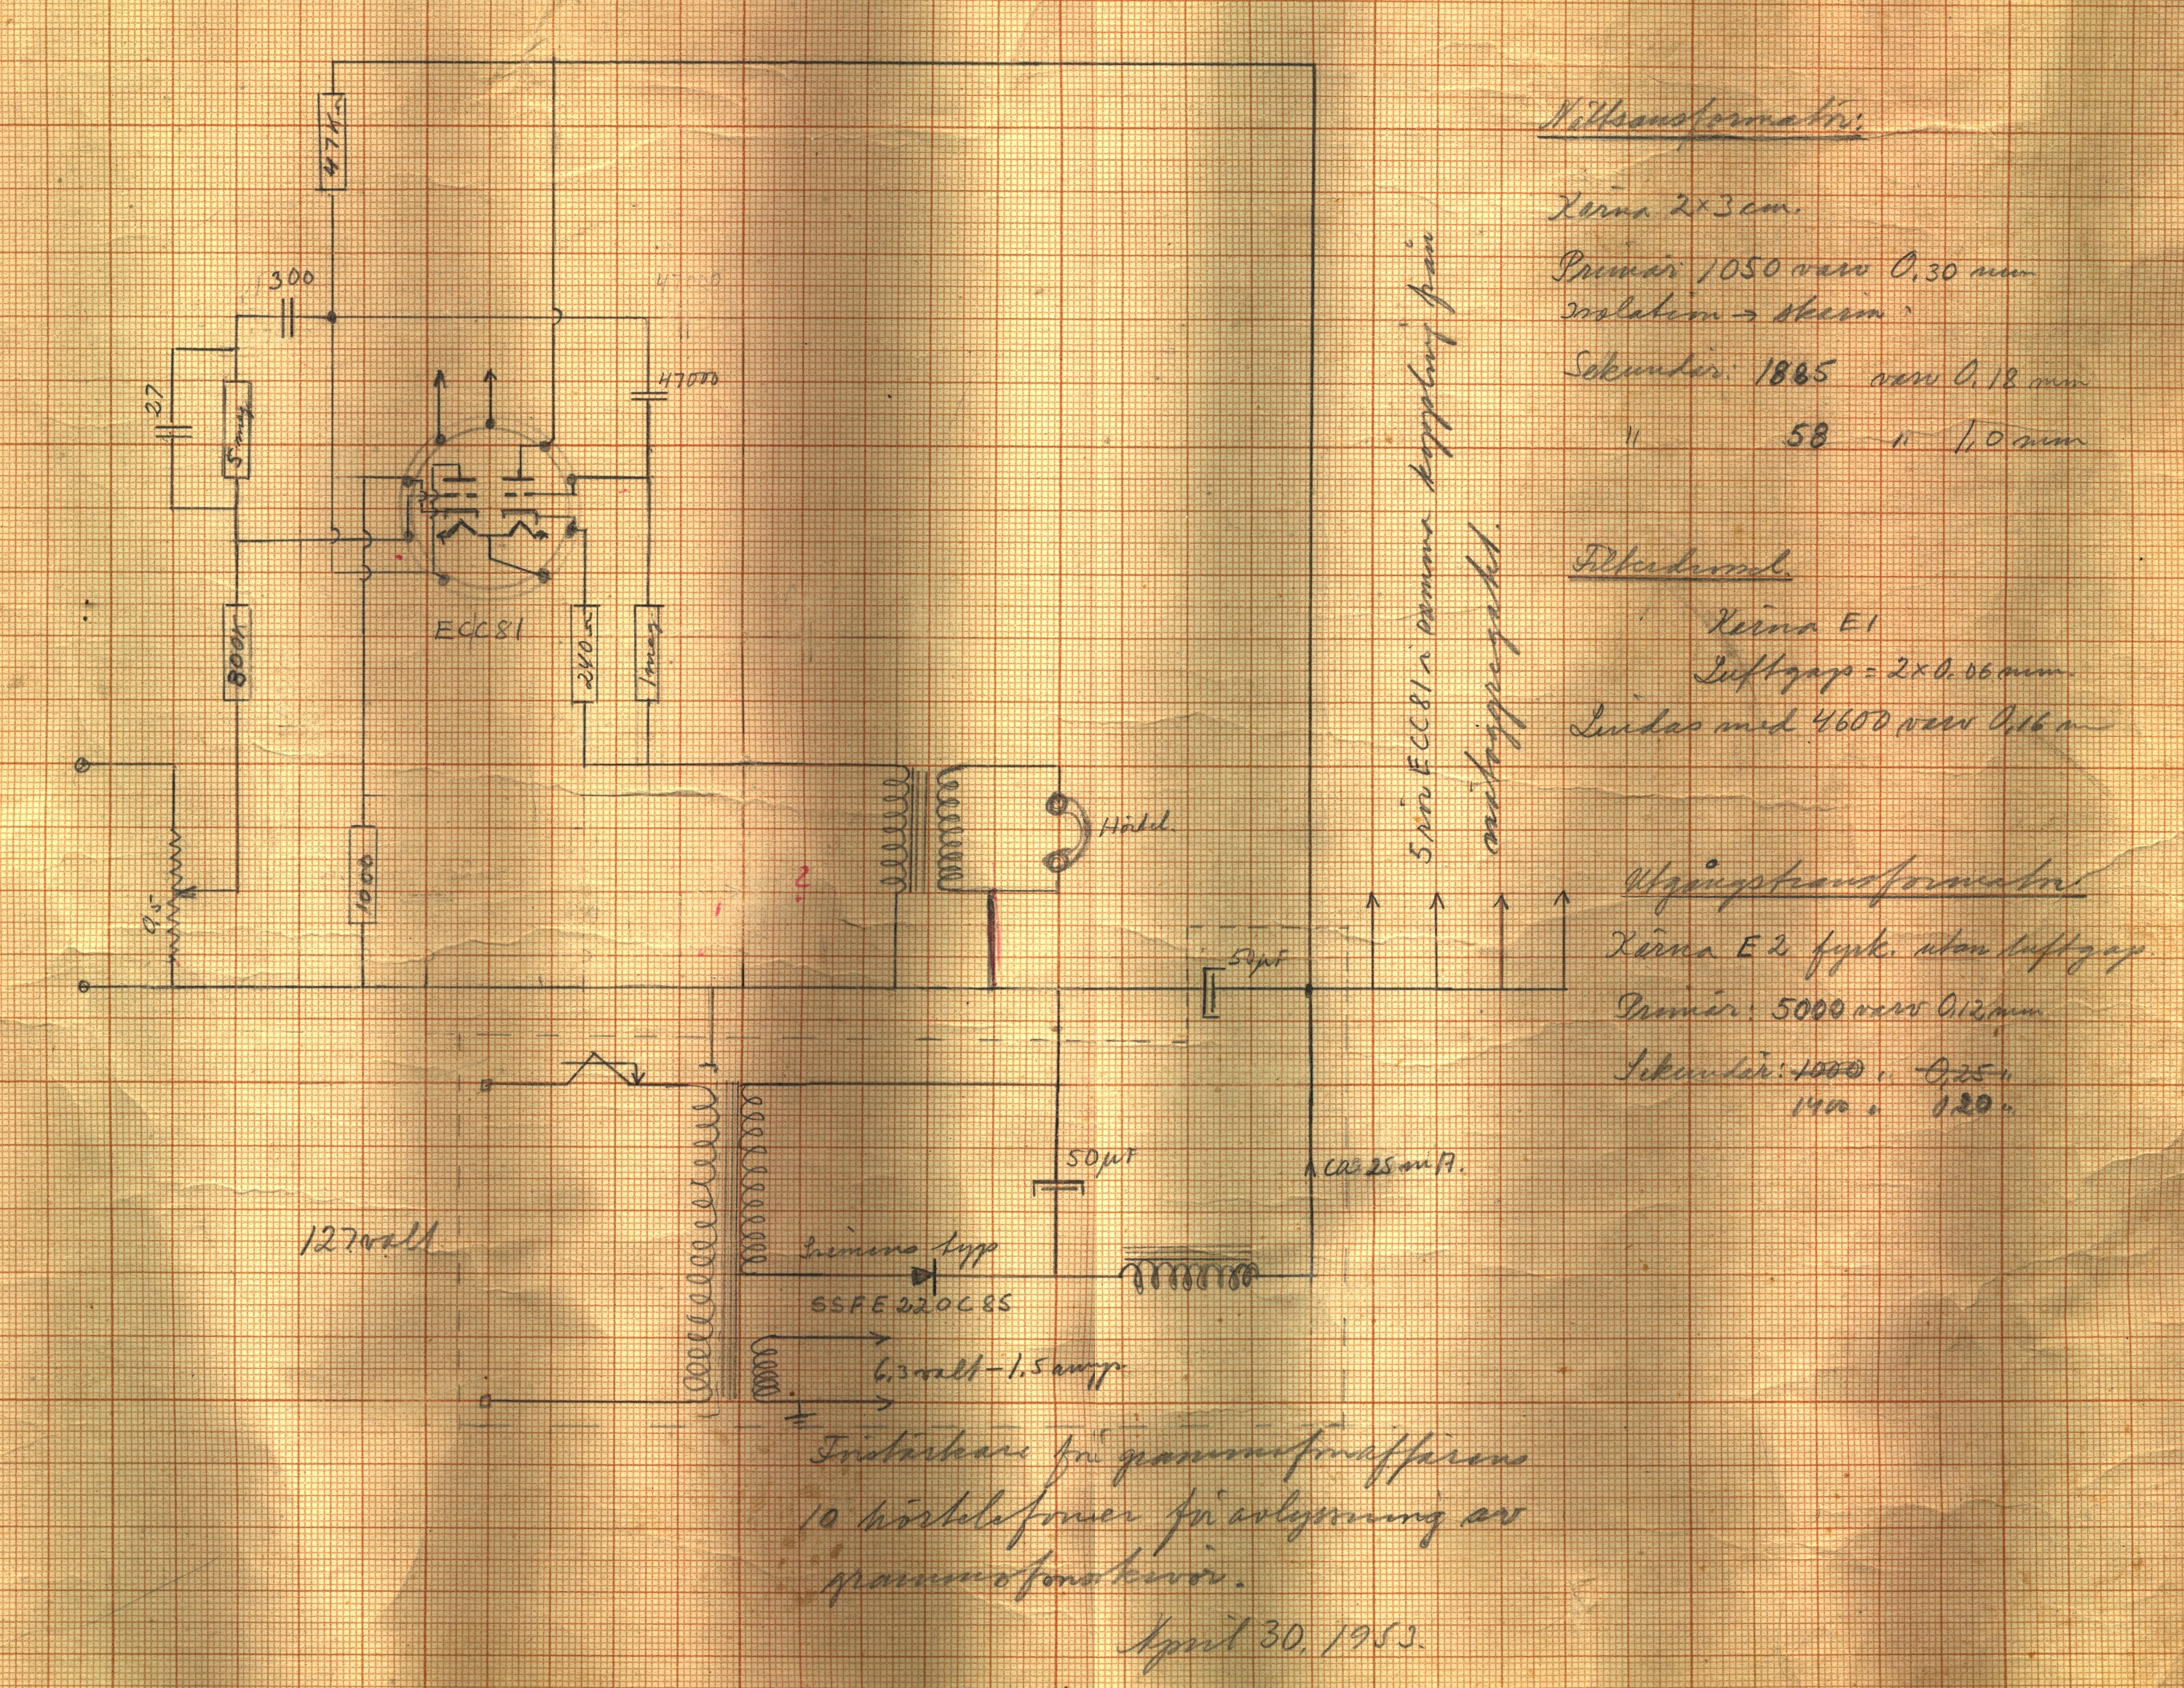 47KΩ
300
47000
27
5 meg
47000
ECC81
800K
240Ω
1meg
0,5
1000
Hörtel.
?
50µF
50µF
ca 25 mA.
127 volt
Siemens typ
SSFE220C85
6.3 volt - 1.5 amp.
5 rör ECC81 i samma koppling från
nätaggregatet.
Nättransformator:
Kärna 2×3 cm.
Primär 1050 varv 0.30 mm
Isolation → skärm
Sekundär: 1885 varv 0.18 mm
" 58 " 1,0 mm
Filterdrossel.
Kärna E1
Luftgap = 2×0.06 mm.
Lindas med 4600 varv 0,16 m
Utgångstransformator
Kärna E2 fyrk. utan luftgap.
Primär: 5000 varv 0.12 mm
Sekundär: 1000 " 0,25 "
1400 " 0.20 "
Förstärkare för grammofonaffärens
10 hörtelefoner för avlyssning av
grammofonskivor.
April 30, 1953.